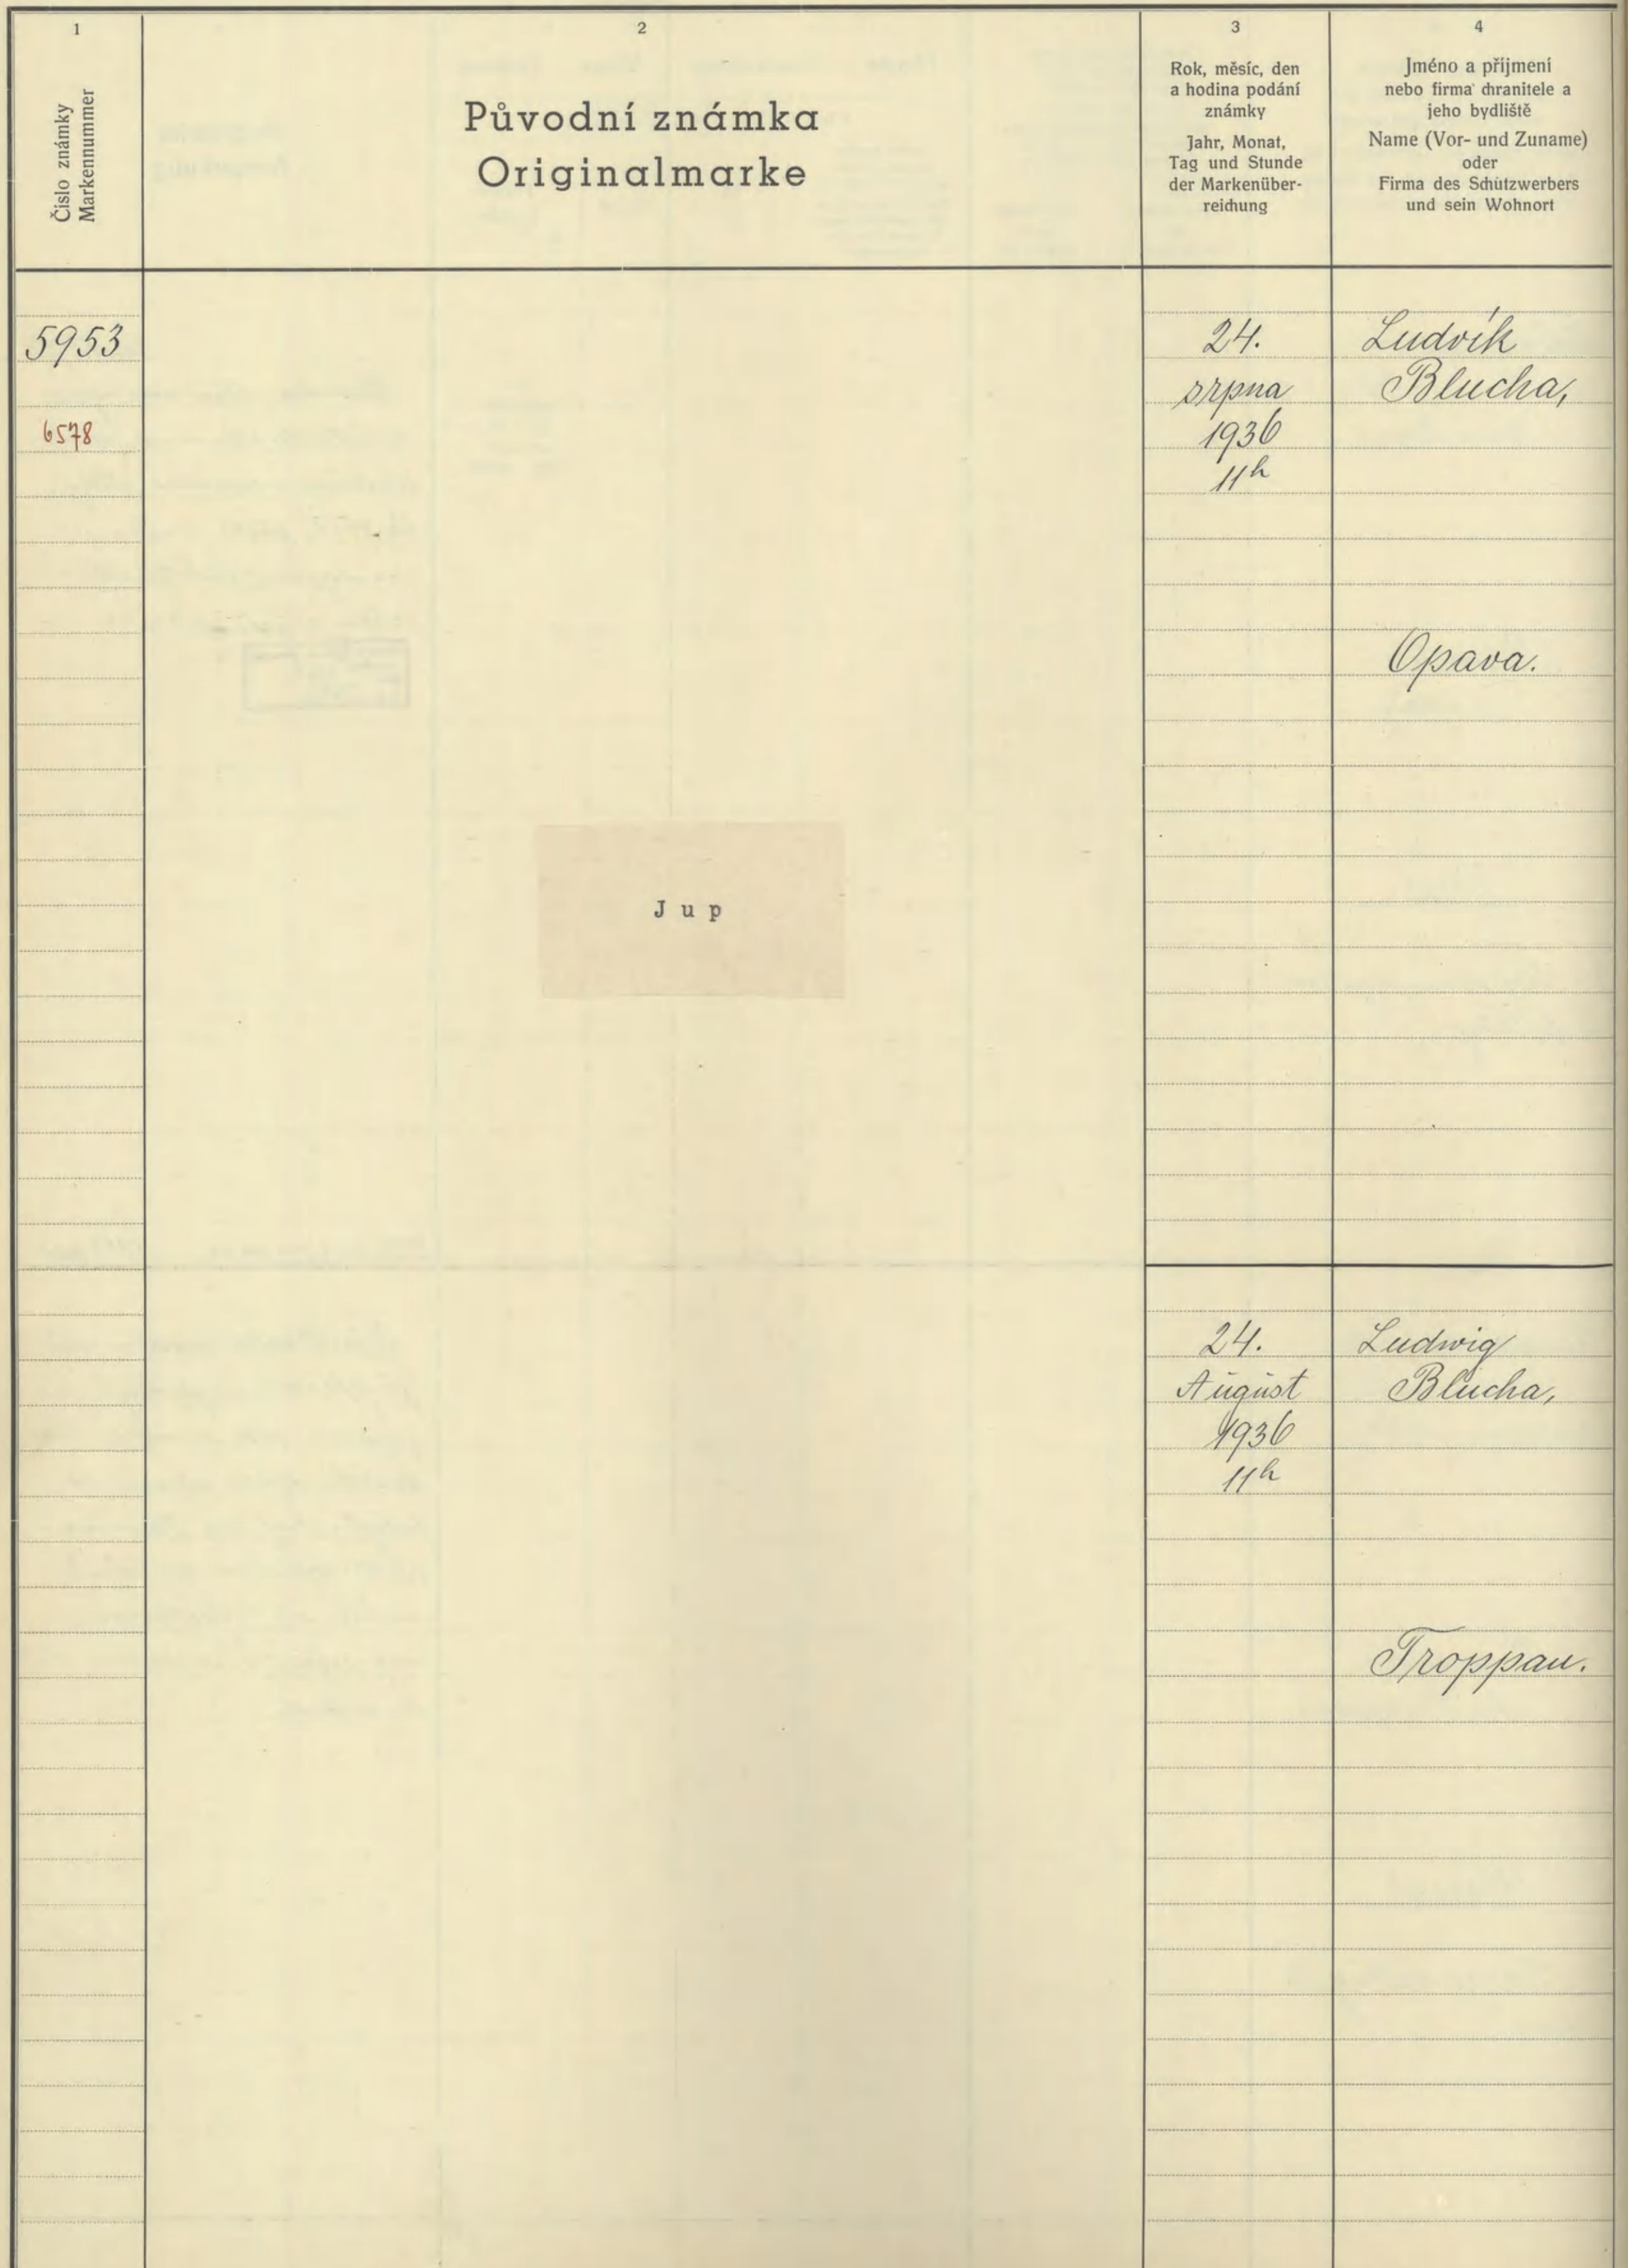 1
Číslo známky
Markennummer
2
Původní známka
Originalmarke
3
Rok, měsíc, den
a hodina podání
známky
Jahr, Monat,
Tag und Stunde
der Markenüber-
reichung
4
Jméno a příjmení
nebo firma chranitele a
jeho bydliště
Name (Vor- und Zuname)
oder
Firma des Schutzwerbers
und sein Wohnort
5953
6578
Jup
24.
srpna
1936
11h
Ludvík
Blucha,
Opava.
24.
August
1936
11h
Ludwig
Blucha,
Troppau.